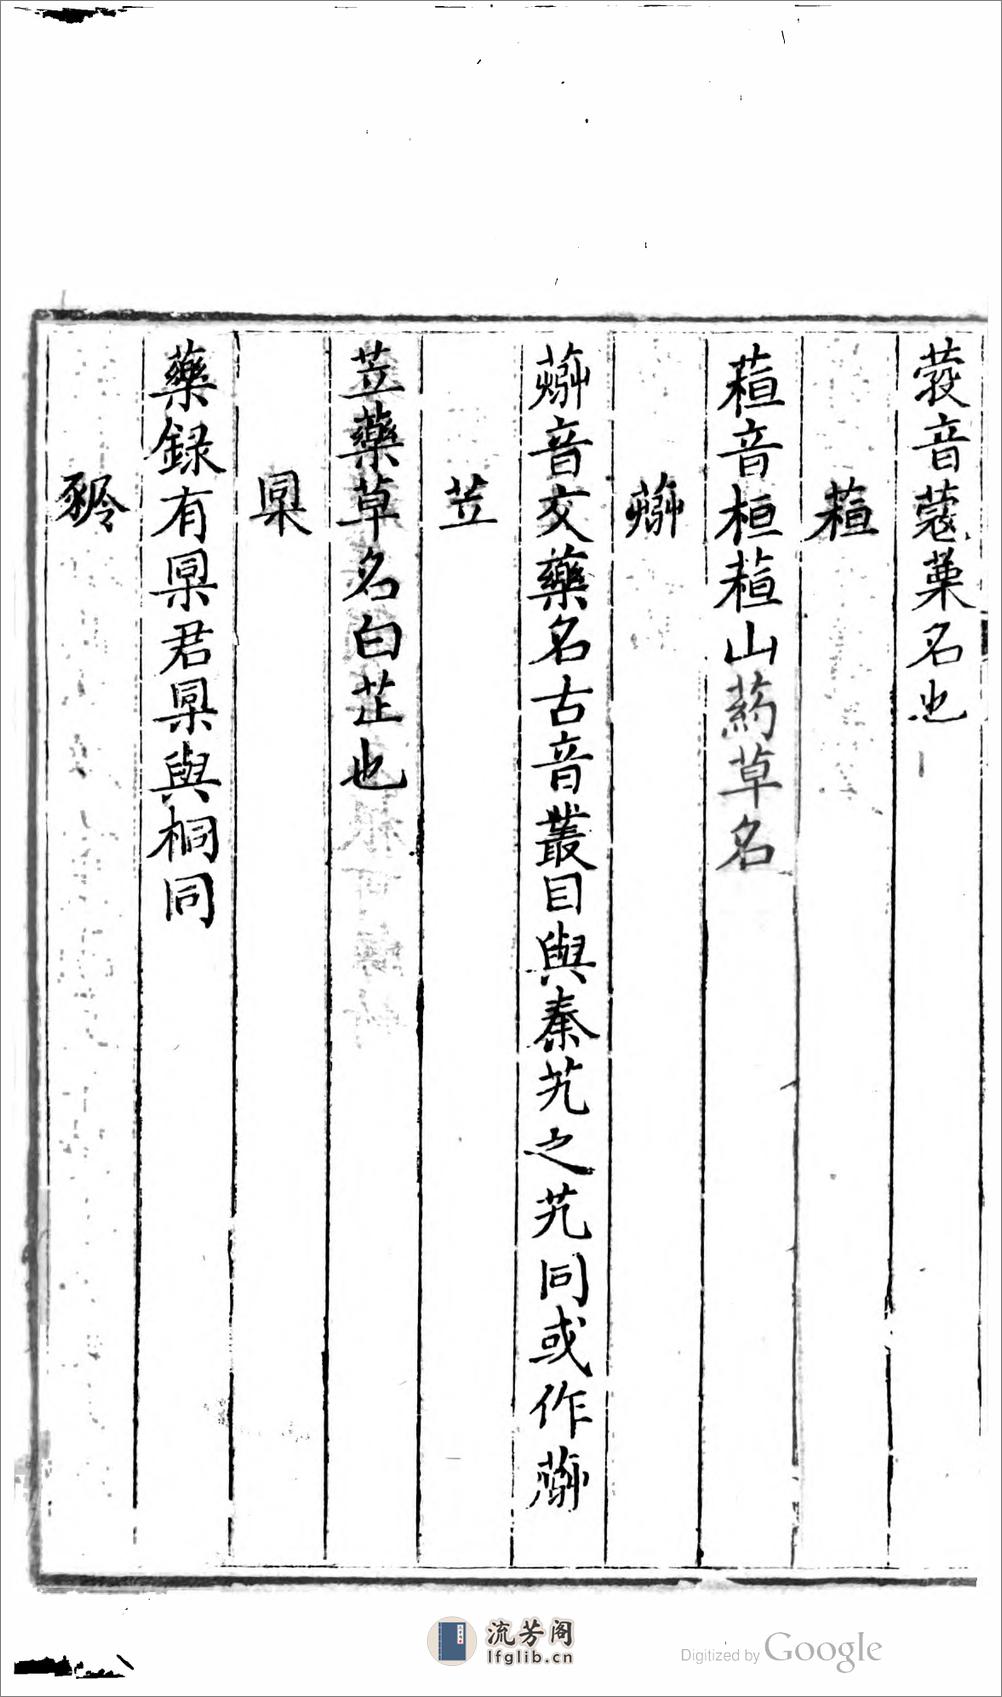 音蔻菓名也
萓
萓音桓萓山葯草名
音交藥名古音叢目與秦艽之艽同或作
苙
苙藥草名白芷也
㮯
藥録有㮯君㮯與桐同
流芳阁
lfglib.cn
Digitized by Google